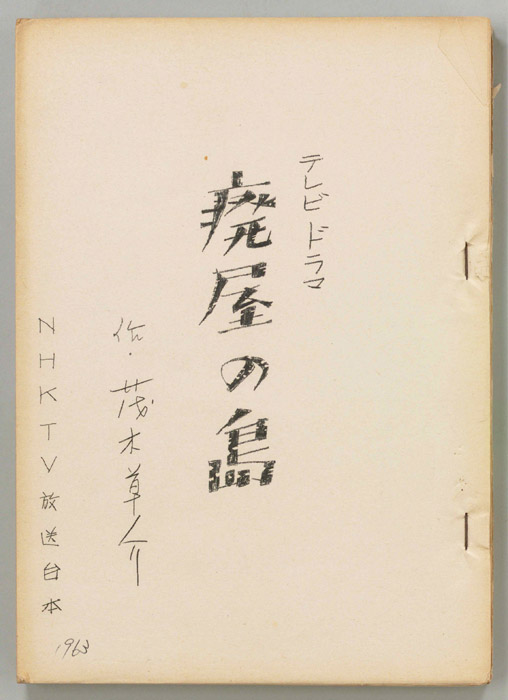 テレビドラマ
廃屋の島
作・茂木草介
NHKTV放送台本
1963